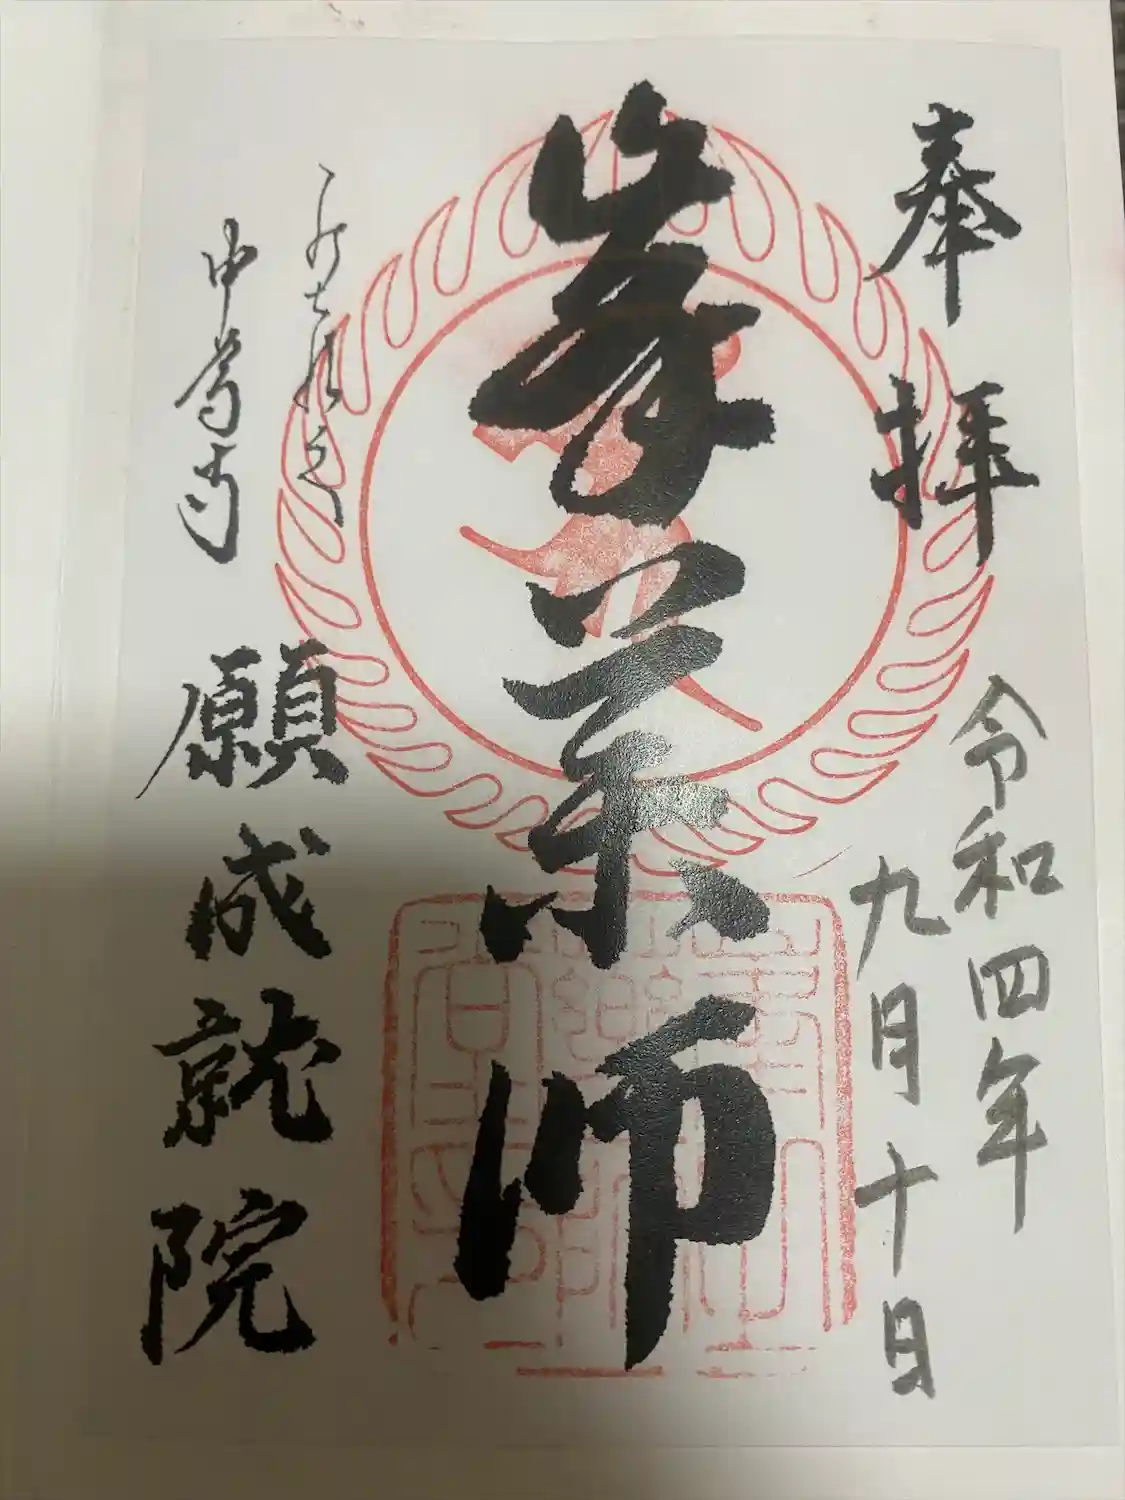 奉拝
令和四年
九月十日
峯薬師
中尊寺
願成就院